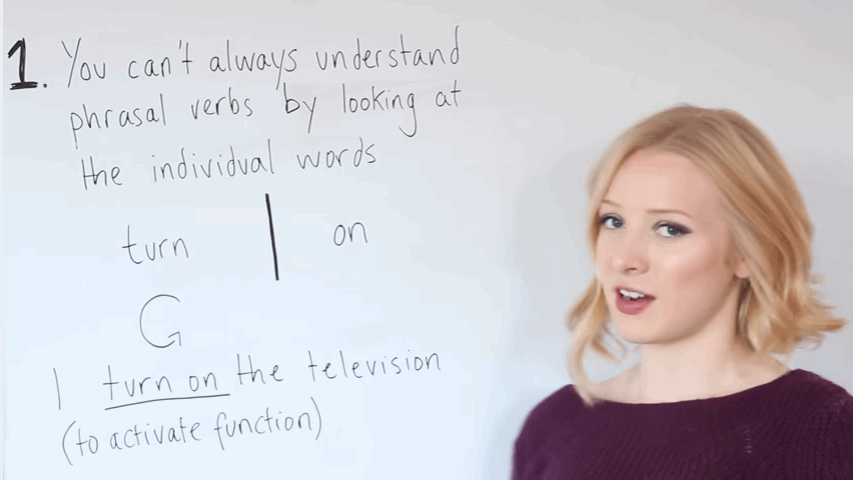 1. You can't always understand
phrasal verbs by looking at
the individual words
turn | on
I turn on the television
(to activate function)